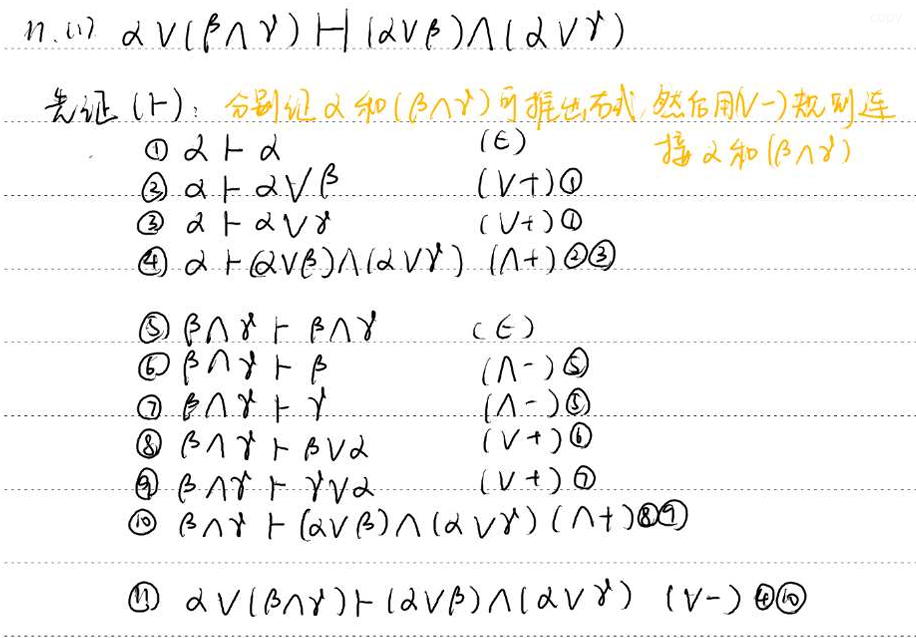 copy
11.(1) α∨(β∧γ) ⊢⊣ (α∨β)∧(α∨γ)
先证(⊢): 分别证α和(β∧γ)可推出右式,然后用(∨-)规则连
接α和(β∧γ)
① α ⊢ α (∈)
② α ⊢ α∨β (∨+)①
③ α ⊢ α∨γ (∨+)①
④ α ⊢ (α∨β)∧(α∨γ) (∧+)②③
⑤ β∧γ ⊢ β∧γ (∈)
⑥ β∧γ ⊢ β (∧-)⑤
⑦ β∧γ ⊢ γ (∧-)⑤
⑧ β∧γ ⊢ β∨α (∨+)⑥
⑨ β∧γ ⊢ γ∨α (∨+)⑦
⑩ β∧γ ⊢ (α∨β)∧(α∨γ) (∧+)⑧⑨
⑪ α∨(β∧γ) ⊢ (α∨β)∧(α∨γ) (∨-)④⑩